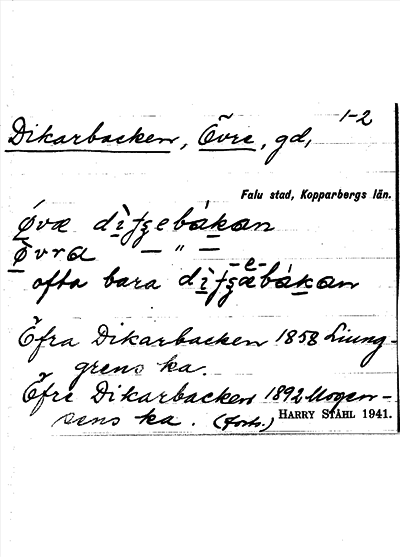 1-2
Dikarbacken, Övre, gd,
Falu stad, Kopparbergs län.
Øvæ
Øvra — " —
ofta bara
Öfra Dikarbacken 1858 Liung-
grens ka.
Öfre Dikarbacken 1892 Mogen-
sens ka. (forts.)
HARRY STÅHL 1941.